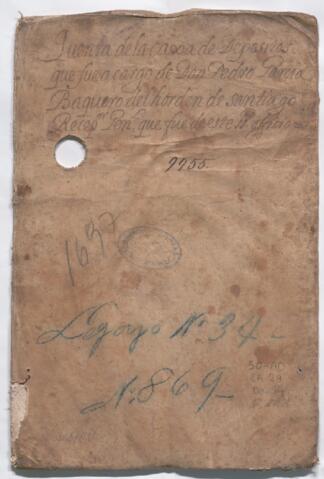 Quenta de la Caxa de Depositos
que fue a cargo de Don Pedro Garcia
Baquero del horden de santiago
Reçeptor Gen.l que fue de este st.º offiçio
9955.
1697
Legajo Nº 34
Nº 869
SO-AD
CA 29